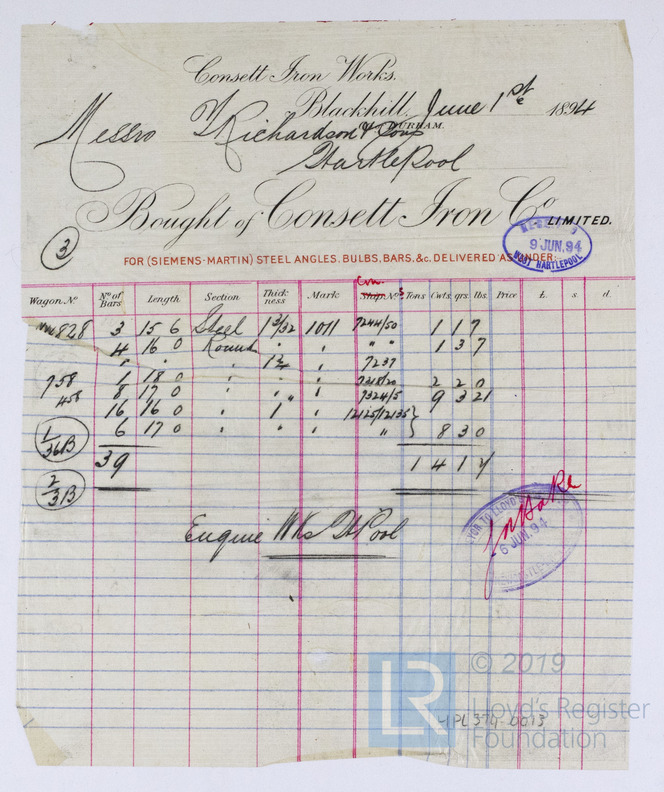 Consett Iron Works.
Blackhill, June 1st 1894
Co. DURHAM.
Messrs T Richardson & Sons
Hartlepool
Bought of Consett Iron Co LIMITED.
3
9 JUN. 94
WEST HARTLEPOOL
FOR (SIEMENS-MARTIN) STEEL ANGLES, BULBS, BARS, &c. DELIVERED AS UNDER:
Con.
Wagon No. No. of Bars Length Section Thickness Mark Ship. Nos Tons Cwts. qrs. lbs. Price £. s. d.
828 3 15 6 Steel 1 3/32 1011 7244/50 1 1 7
4 16 0 Round " " " " 1 3 7
" " " 1 3/4 " 7237
758 1 18 0 " " " 7218/20 2 2 0
458 8 17 0 " " " 7324/5 9 3 21
16 16 0 " 1 " 12125/12135
1/36B 6 17 0 " " " " 8 3 0
39 1 4 1 7
2/3B
Engine Wks H Pool
6 JUN. 94
HPL374-0013
LR
© 2019
Lloyd's Register
Foundation